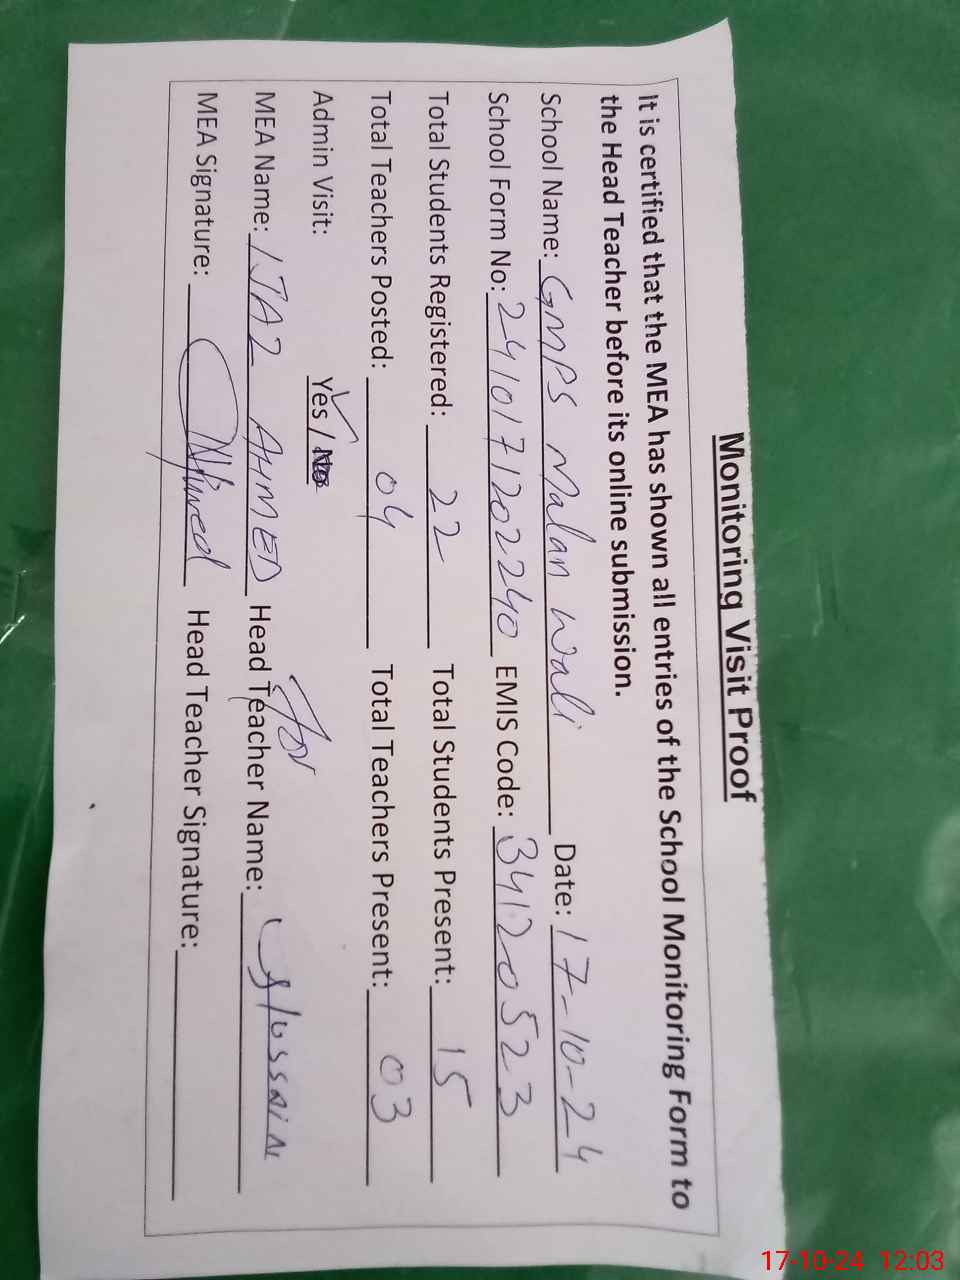 Monitoring Visit Proof
It is certified that the MEA has shown all entries of the School Monitoring Form to
the Head Teacher before its online submission.
School Name: GMPS Malan Wali Date: 17-10-24
School Form No: 2410171202240 EMIS Code: 34120523
Total Students Registered: 22 Total Students Present: 15
Total Teachers Posted: 04 Total Teachers Present: 03
Admin Visit: Yes / No
For
MEA Name: IJAZ AHMED Head Teacher Name: Hussain
MEA Signature: Head Teacher Signature:
17-10-24 12:03